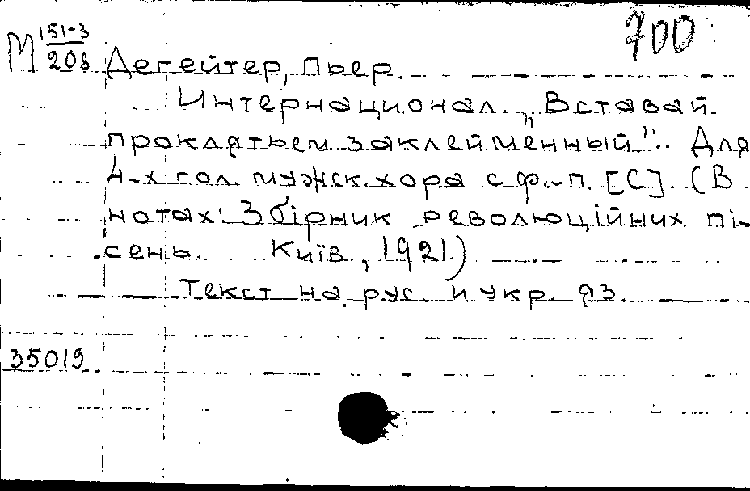 М 151-3/208
700
Дегейтер, Пьер.
Интернационал. „Вставай
проклятьем заклейменный". Для
4-х гол. мужск. хора с ф.-п. [C]. (В
нотах: Збірник революційних пі-
сень. Київ, 1921)
Текст на рус. и укр. яз.
35019